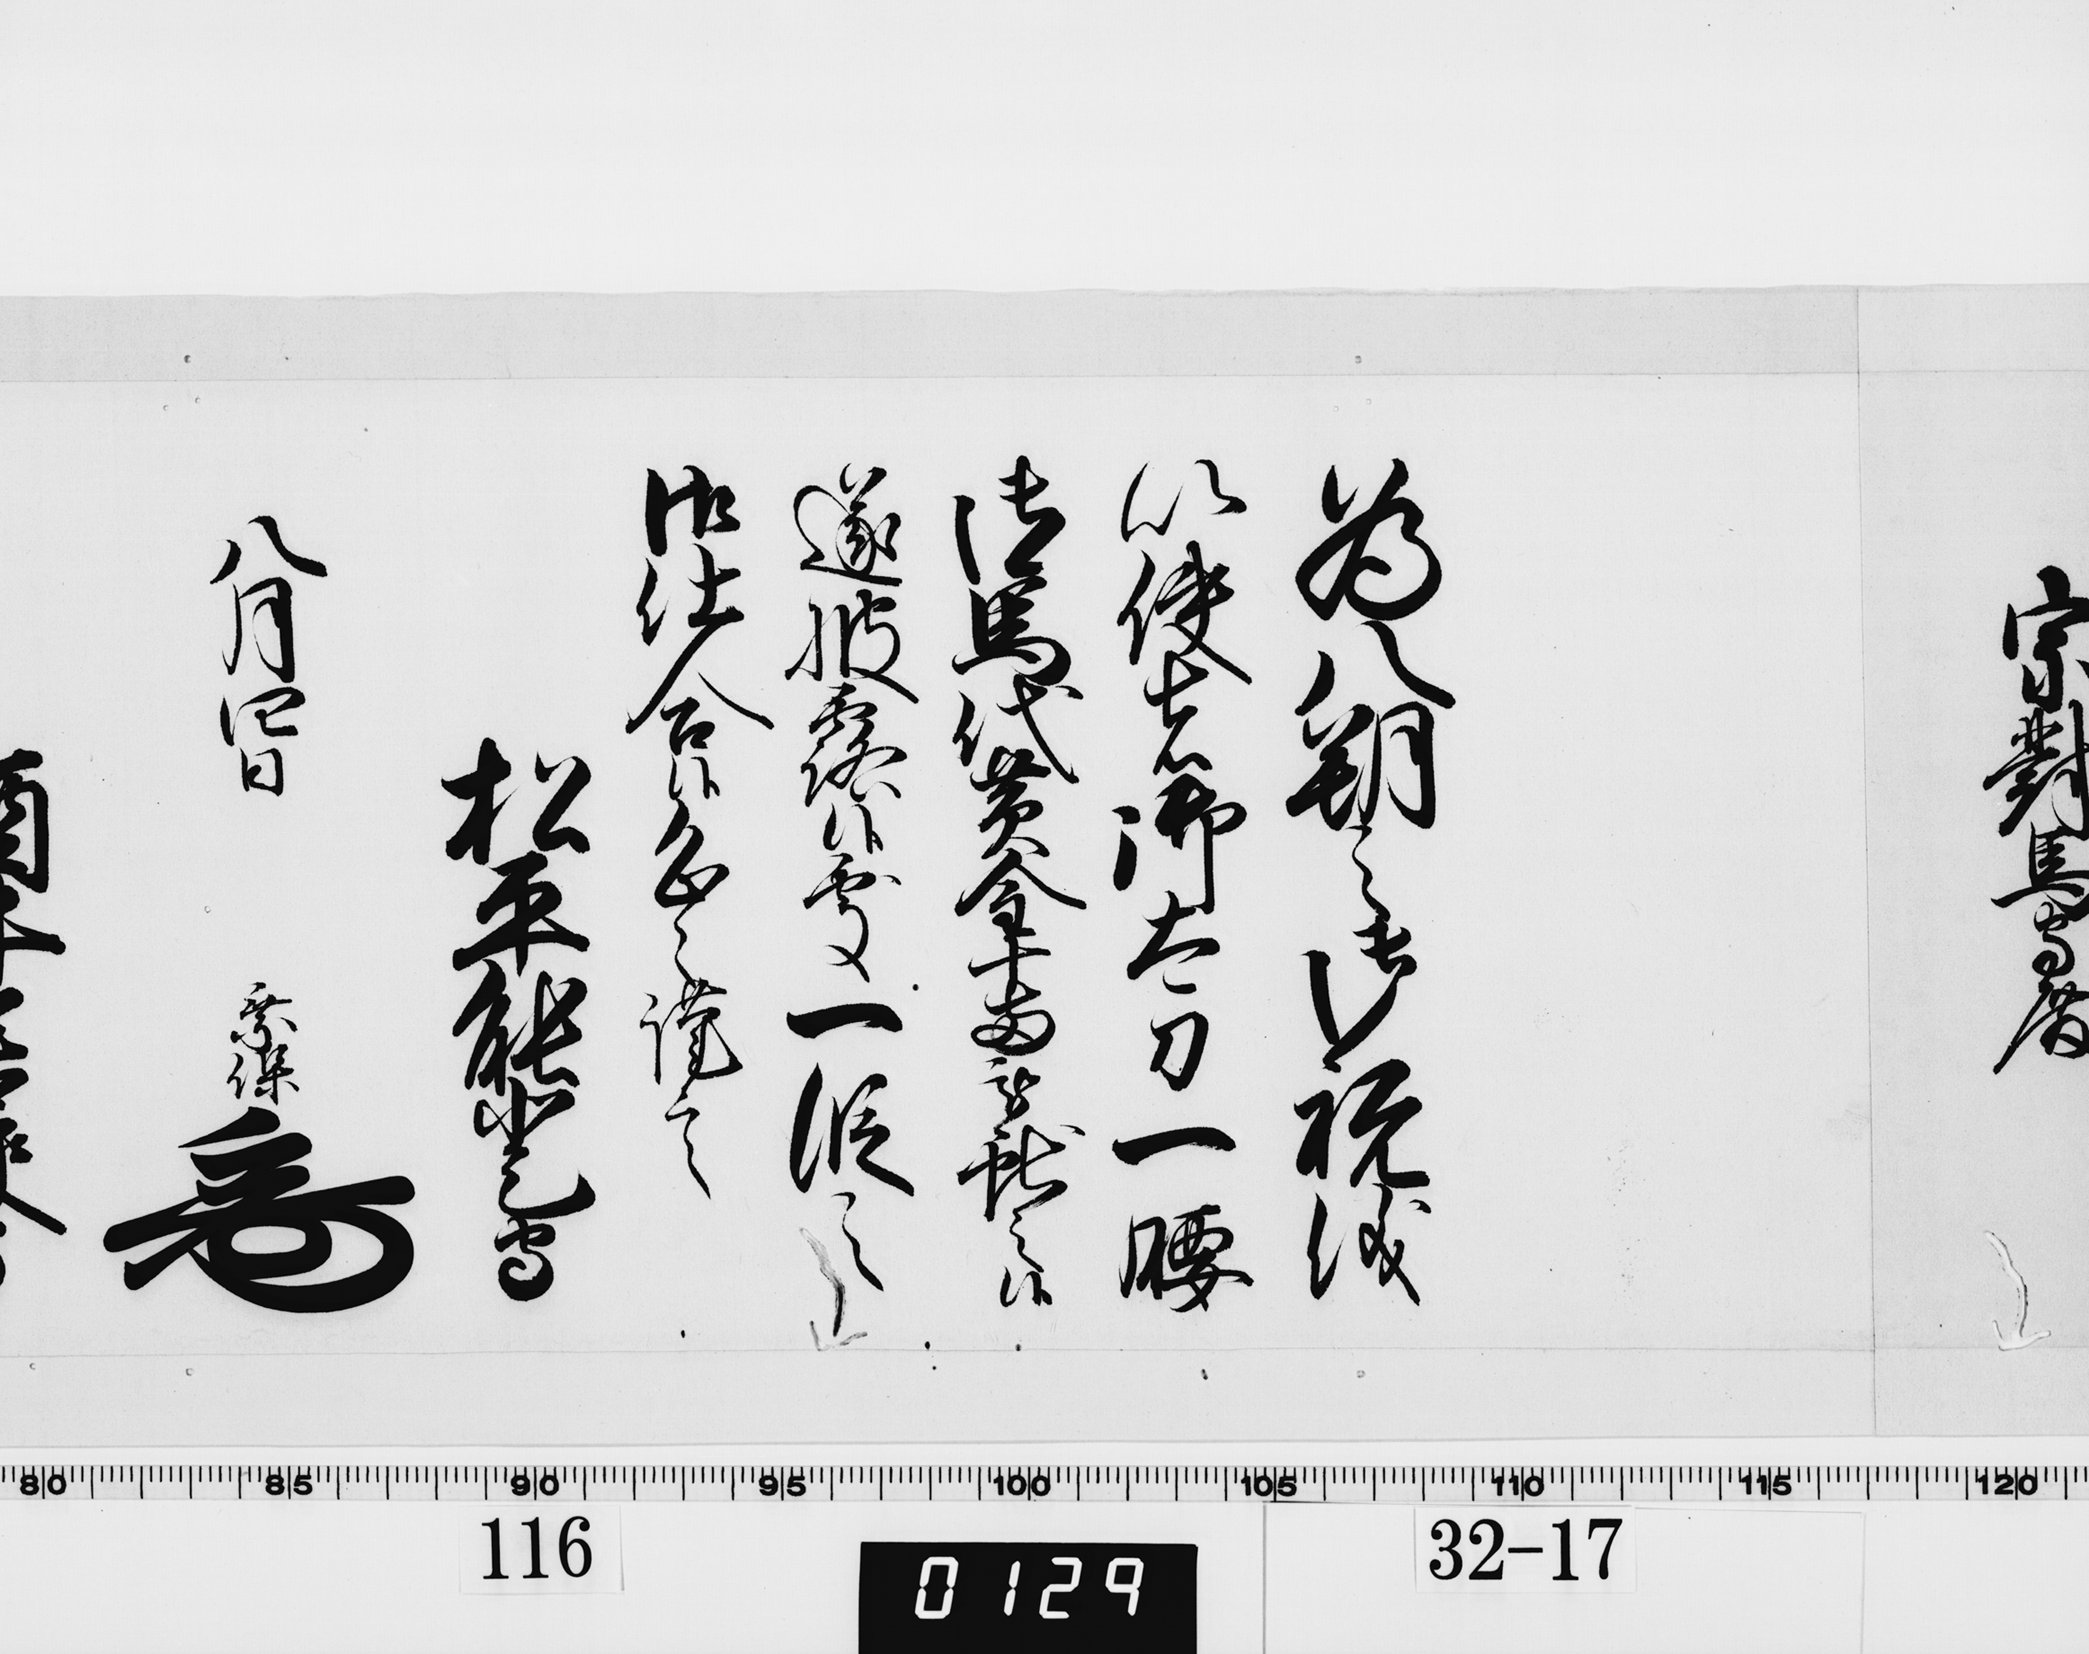 宗對馬守殿
為八朔之御祝儀
以使者御太刀一腰
御馬代黄金十両被獻之候
遂披露候處一段之
御仕合候恐々謹言
松平能登守
八月四日
乗保
80 85 90 95 100 105 110 115 120
116
0129
32-17